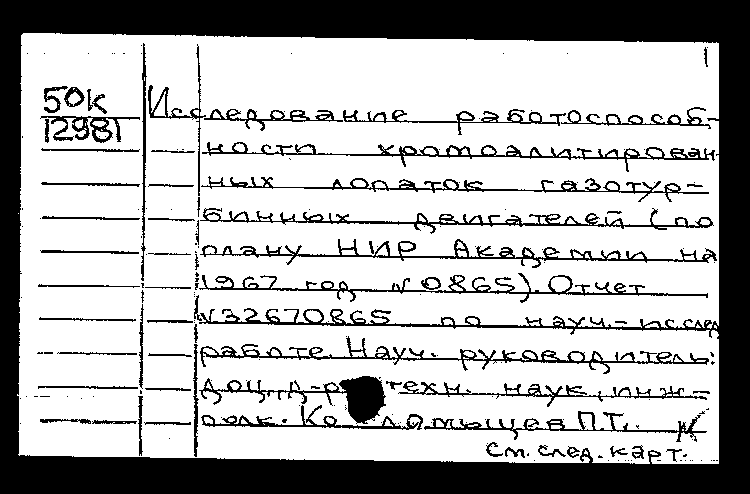 50К
12981
Исследование работоспособ-
ности хромоалитирован
ных лопаток газотур-
бинных двигателей (по
плану НИР Академии на
1967 год №0865). Отчет
№32670865 по науч.-исслед
работе. Науч. руководитель:
доц., д-р техн. наук, инж-
полк. Ко ломыцев П.Т..
см. след. карт.